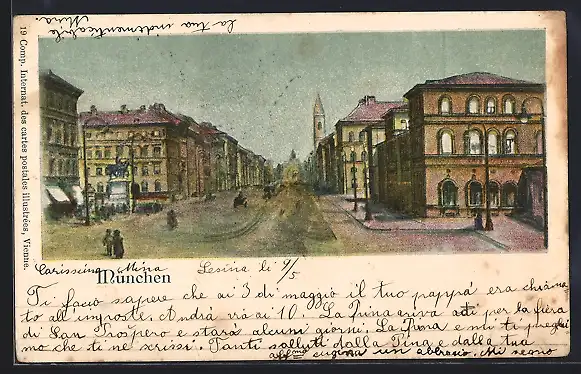 la tua indimenticabile
Mina.
19 Comp. Internat. des cartes postales illustrées, Vienne.
München
Carissima Mina Lesina li 9/5
Ti facio sapere che ai 3 di maggio il tuo pappà era chiama
to all'imposte. Andrà via ai 10. La Pina ariva adi per la fiera
di San Prospero e starà alcuni giorni. La Pina e mi ti preghi
mo che ti ne scrissi. Tanti saluti dalla Pina e dalla tua
affma cugina un abbracio. Mi segno